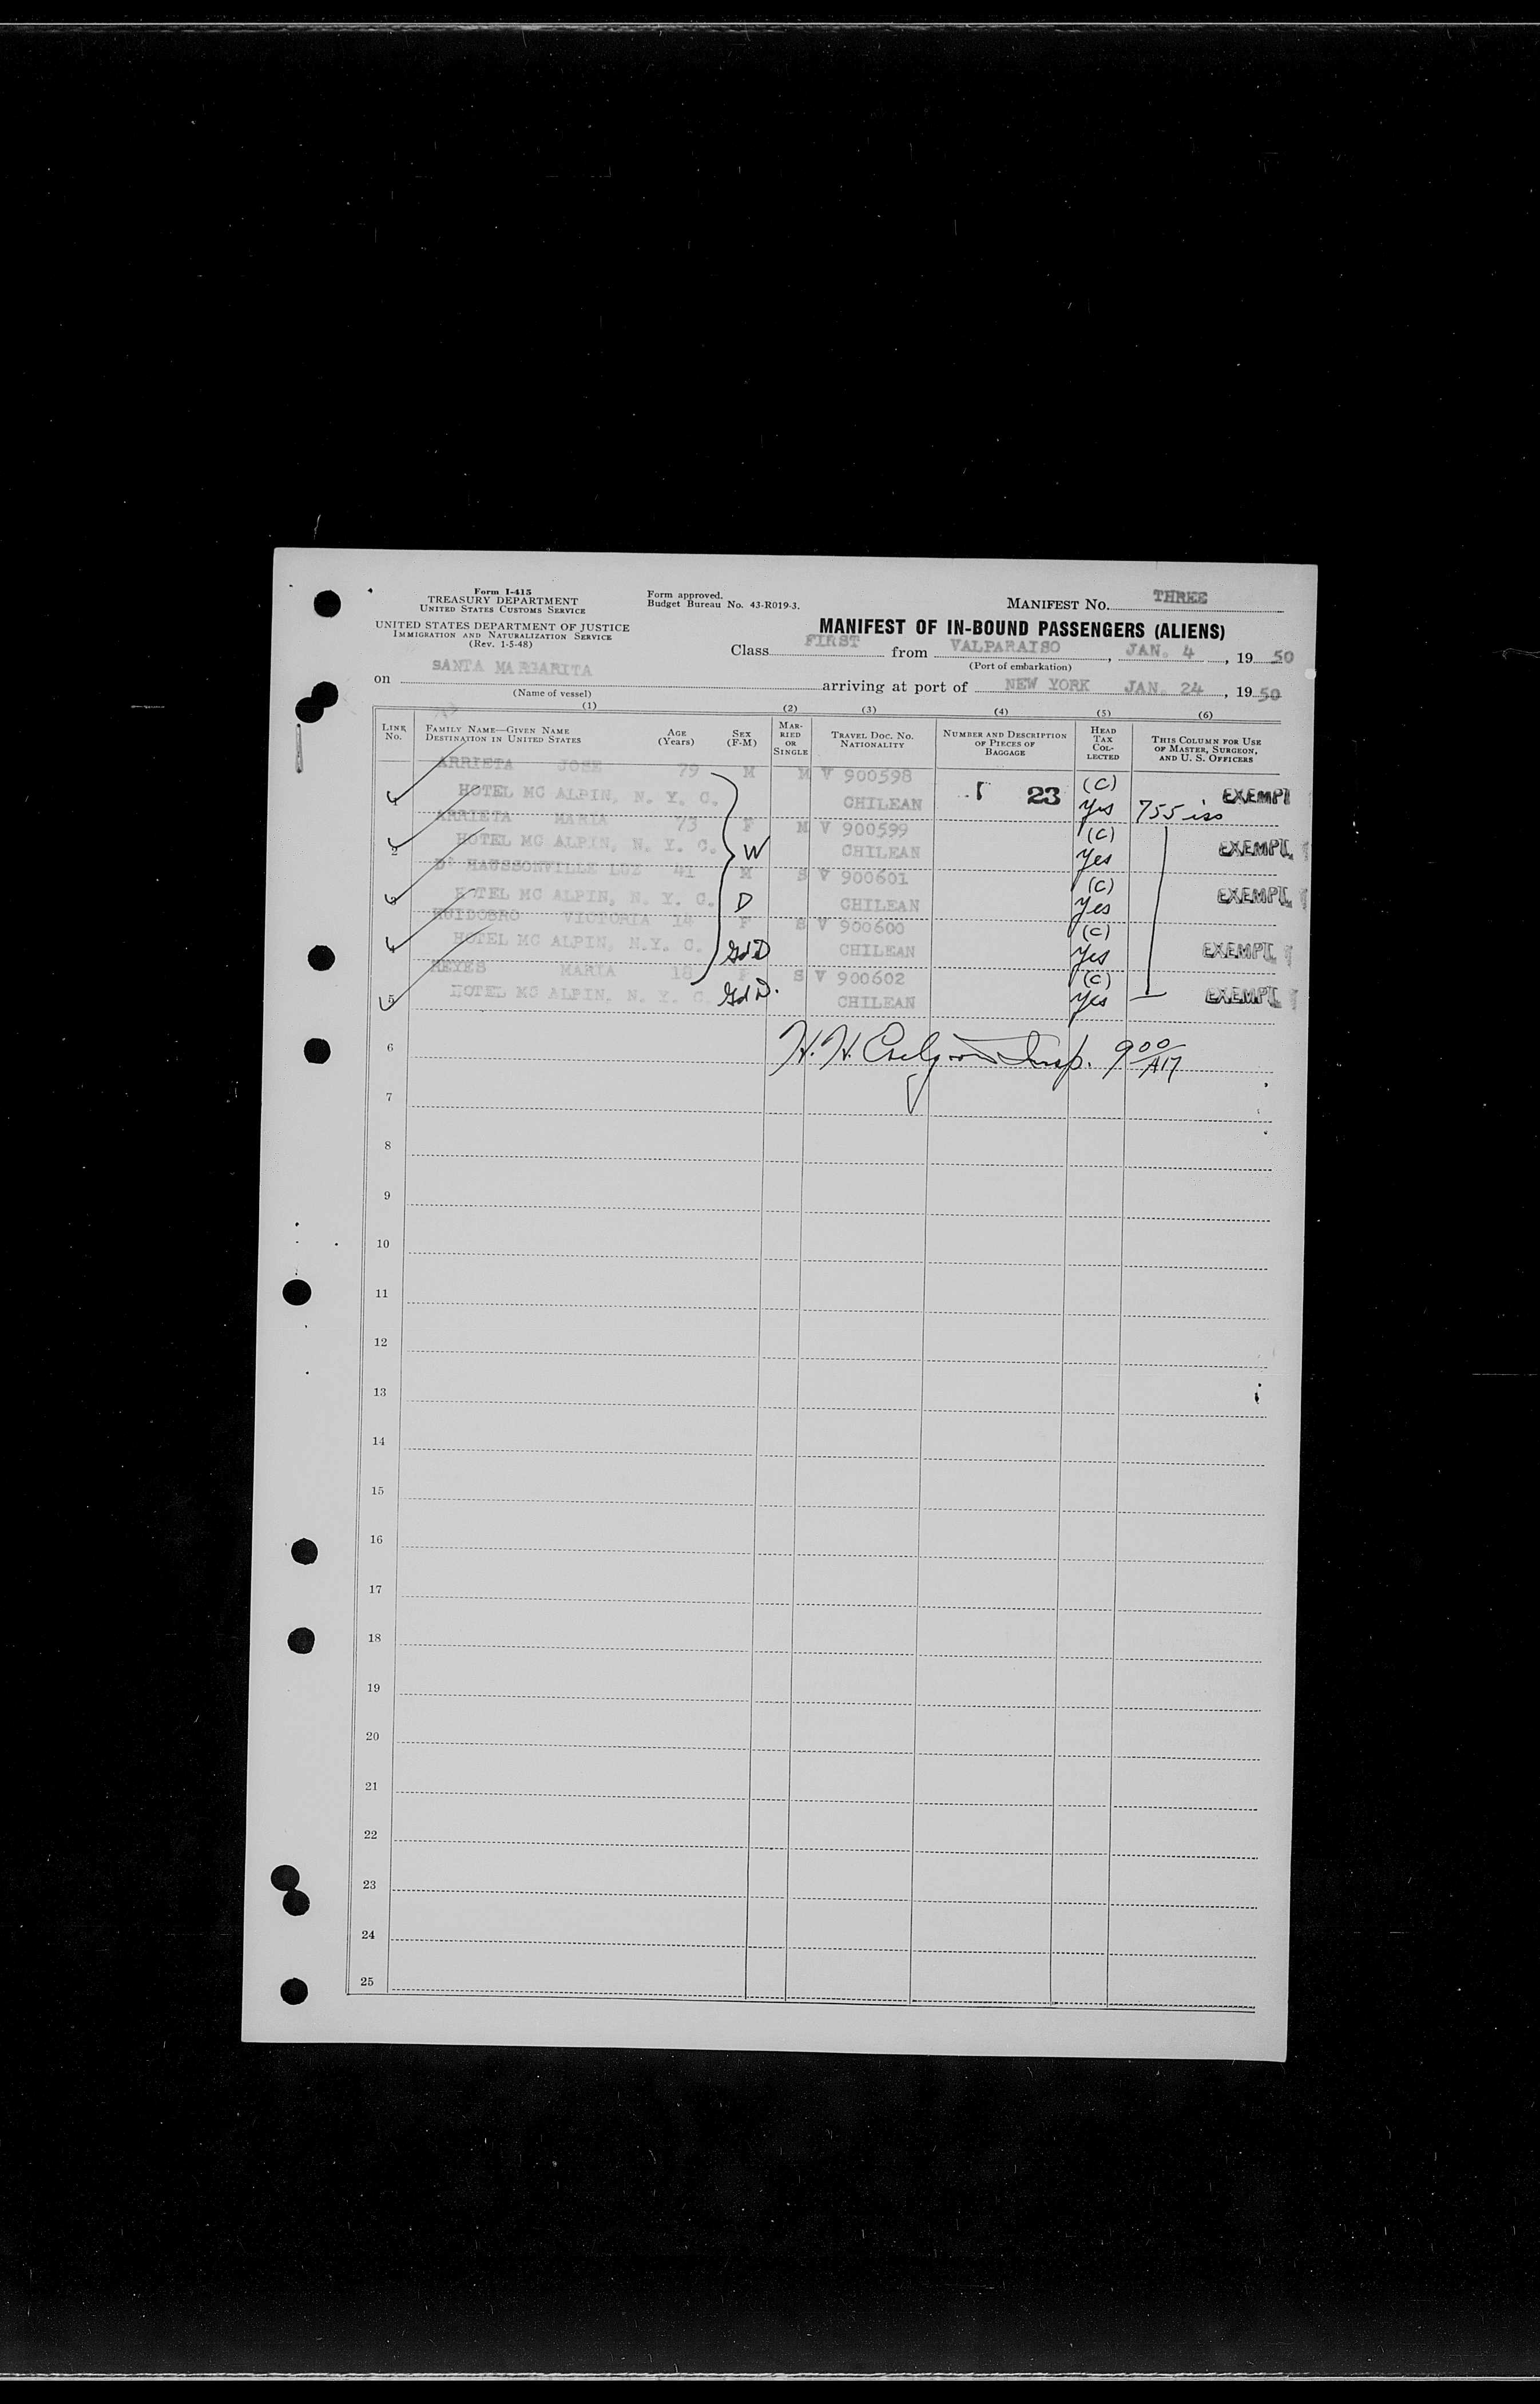 Form I-415
TREASURY DEPARTMENT
UNITED STATES CUSTOMS SERVICE
UNITED STATES DEPARTMENT OF JUSTICE
IMMIGRATION AND NATURALIZATION SERVICE
(Rev. 1-5-48)
Form approved.
Budget Bureau No. 43-R019-3.
MANIFEST NO. THREE
MANIFEST OF IN-BOUND PASSENGERS (ALIENS)
Class FIRST from VALPARAISO, JAN. 4, 1950
(Port of embarkation)
on SANTA MARGARITA arriving at port of NEW YORK JAN. 24, 1950
(Name of vessel)
(1) (2) (3) (4) (5) (6)
LINE NO. FAMILY NAME—GIVEN NAME DESTINATION IN UNITED STATES AGE (Years) SEX (F-M) MARRIED OR SINGLE TRAVEL DOC. NO. NATIONALITY NUMBER AND DESCRIPTION OF PIECES OF BAGGAGE HEAD TAX COLLECTED THIS COLUMN FOR USE OF MASTER, SURGEON, AND U. S. OFFICERS
ARRIETA JOSE 79 M M V 900598 23 (C)
1 HOTEL MC ALPIN, N. Y. C. CHILEAN Yes 755 iss EXEMPT
ARRIETA MARIA 73 F M V 900599 (C)
2 HOTEL MC ALPIN, N. Y. C. W CHILEAN Yes EXEMPT
D' HAUSSONVILLE LUZ 41 M S V 900601 (C)
3 HOTEL MC ALPIN, N. Y. C. D CHILEAN Yes EXEMPT
HUIDOBRO VICTORIA 14 F S V 900600 (C)
4 HOTEL MC ALPIN, N.Y. C. Gd D CHILEAN Yes EXEMPT
REYES MARIA 18 F S V 900602 (C)
5 HOTEL MC ALPIN, N. Y. C. Gd D. CHILEAN Yes EXEMPT
6 H. H. Insp. 9 00 AM
7
8
9
10
11
12
13
14
15
16
17
18
19
20
21
22
23
24
25